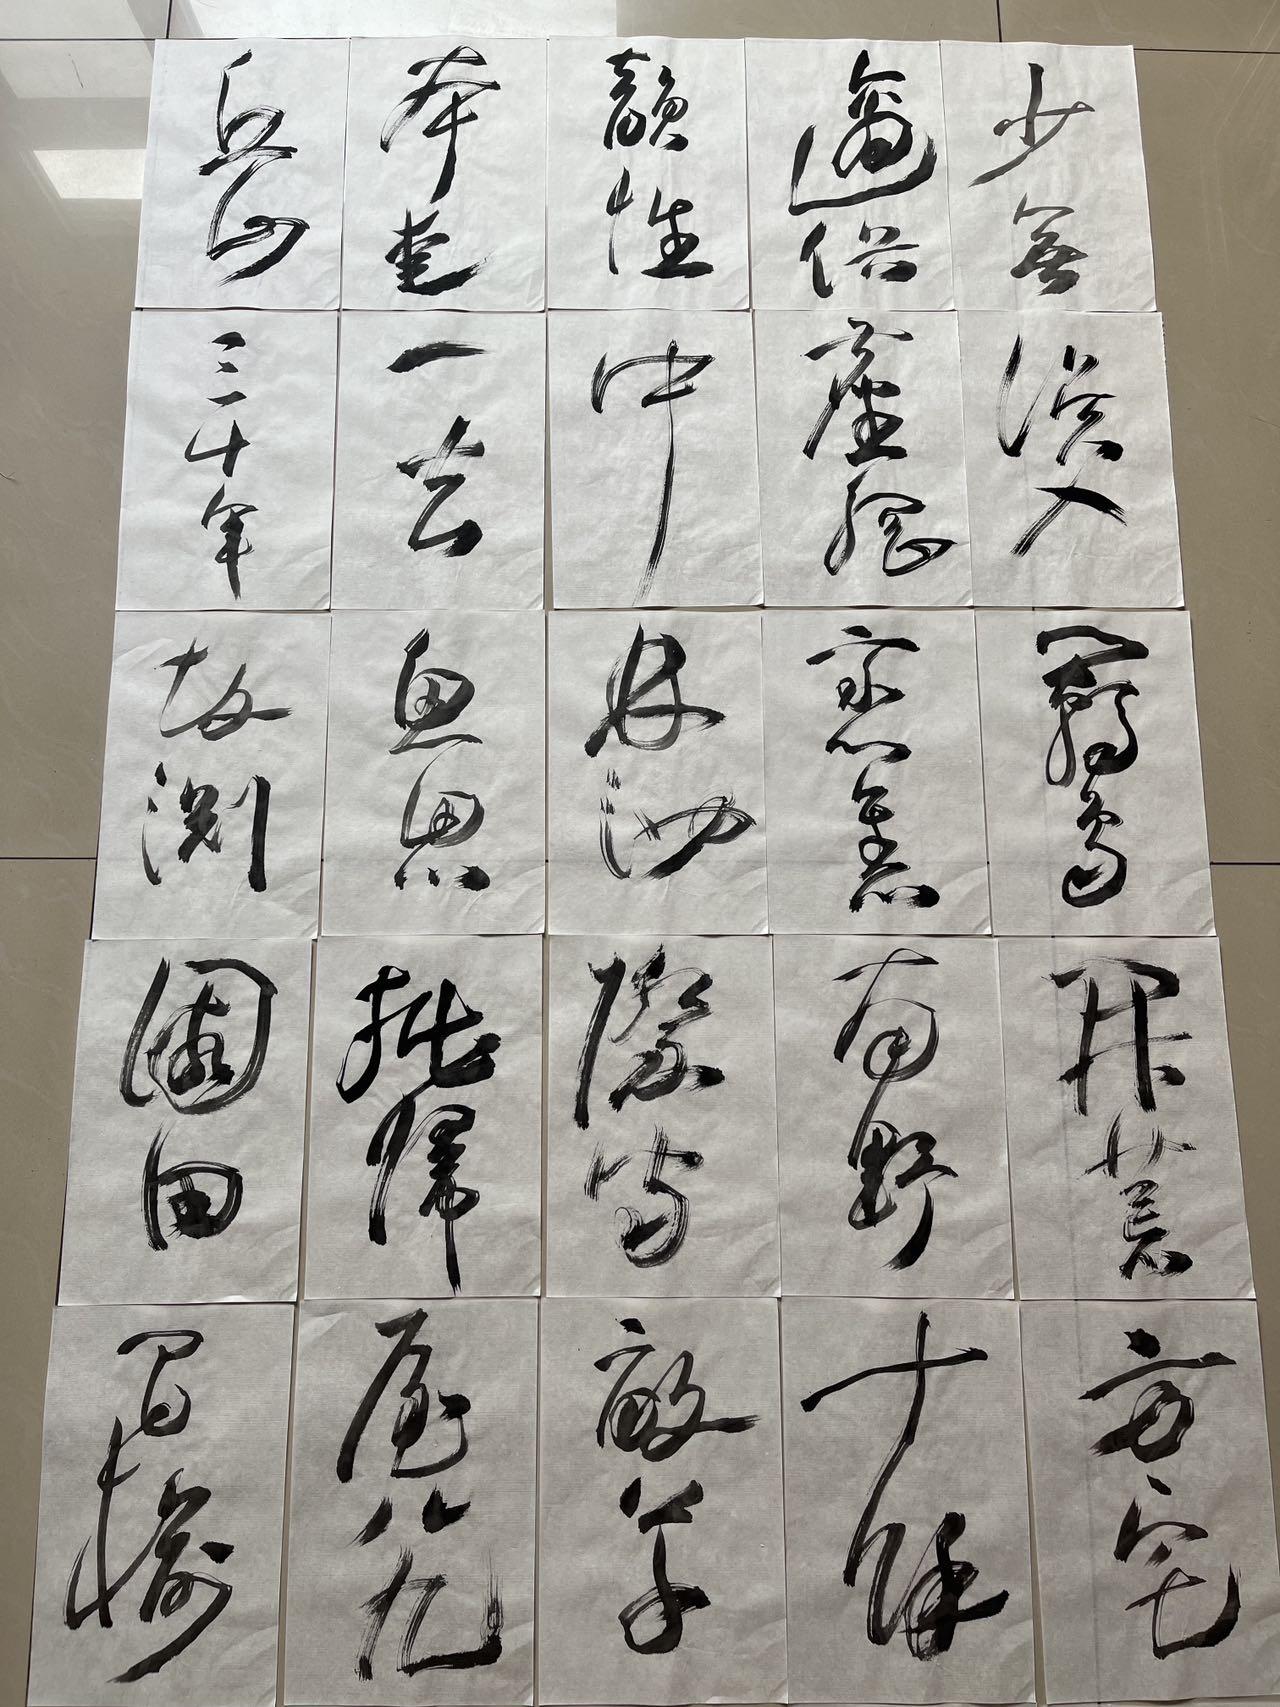 少無適俗韻性本愛丘山
誤入塵網中一去三十年
羈鳥戀舊林池魚思故淵
開荒南野際守拙歸園田
方宅十餘畝草屋八九間榆